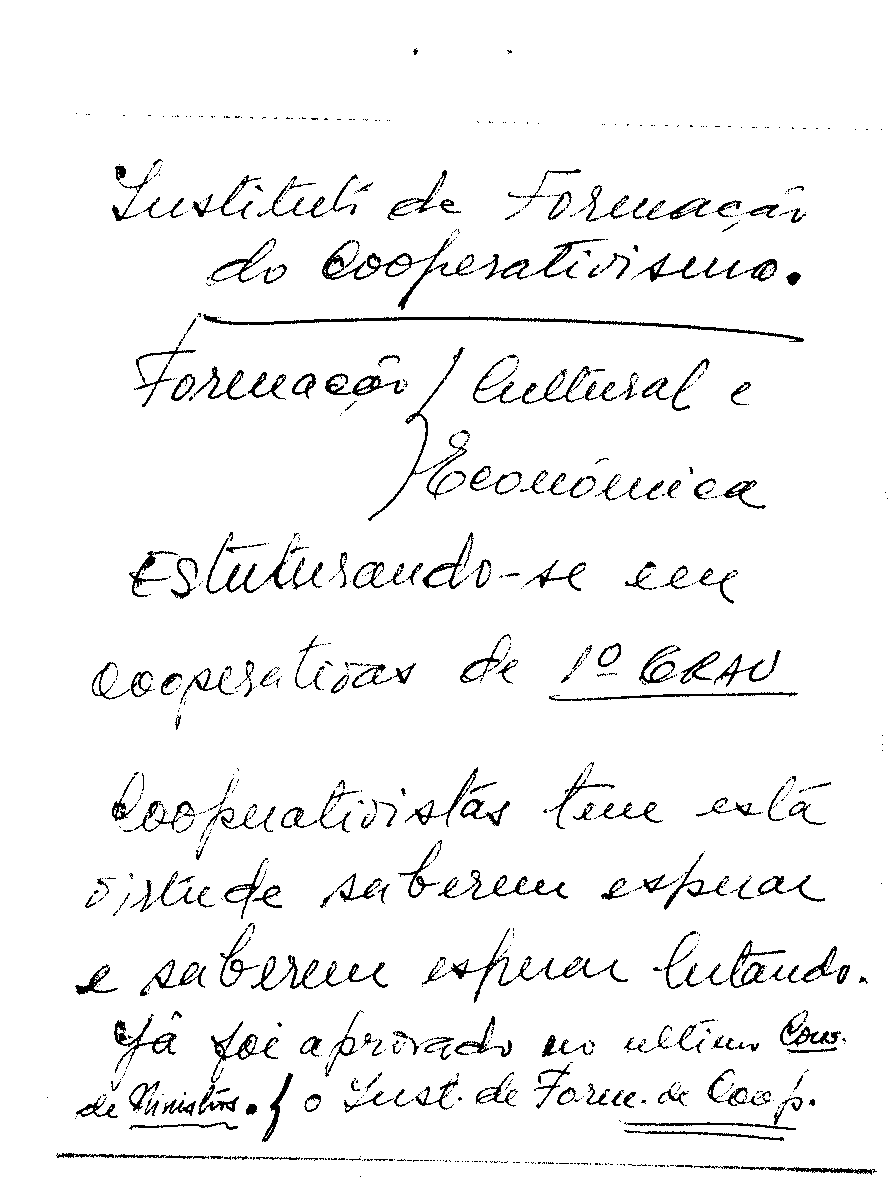 Instituto de Formação
do Cooperativismo.
Formação / Cultural e
) Económica
Estuturando-se em
Cooperativas de 1º GRAU
Cooperativistas tem está
virtude saberem esperar
e saberem esperar lutando.
Já foi aprovado no ultimo Cons.
de Ministros. { o Inst. de Form. de Coop.